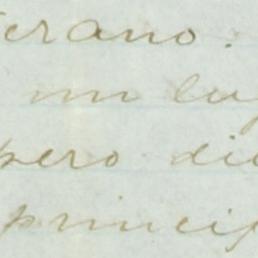 terano.
un lug
pero dic
princip